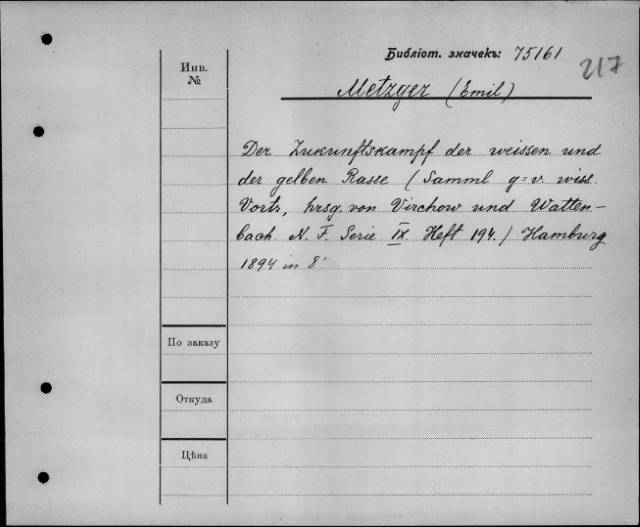 Библіот. значекъ: 75161
217
Инв.
№
Metzger (Emil)
Der Zukunftskampf der weissen und
der gelben Rasse (Samml g=v. wiss.
Vortr, hrsg. von Virchow und Watten-
bach. N. F. Serie IX. Heft 194.) Hamburg
1894 in 8°
По заказу
Откуда
Цѣна